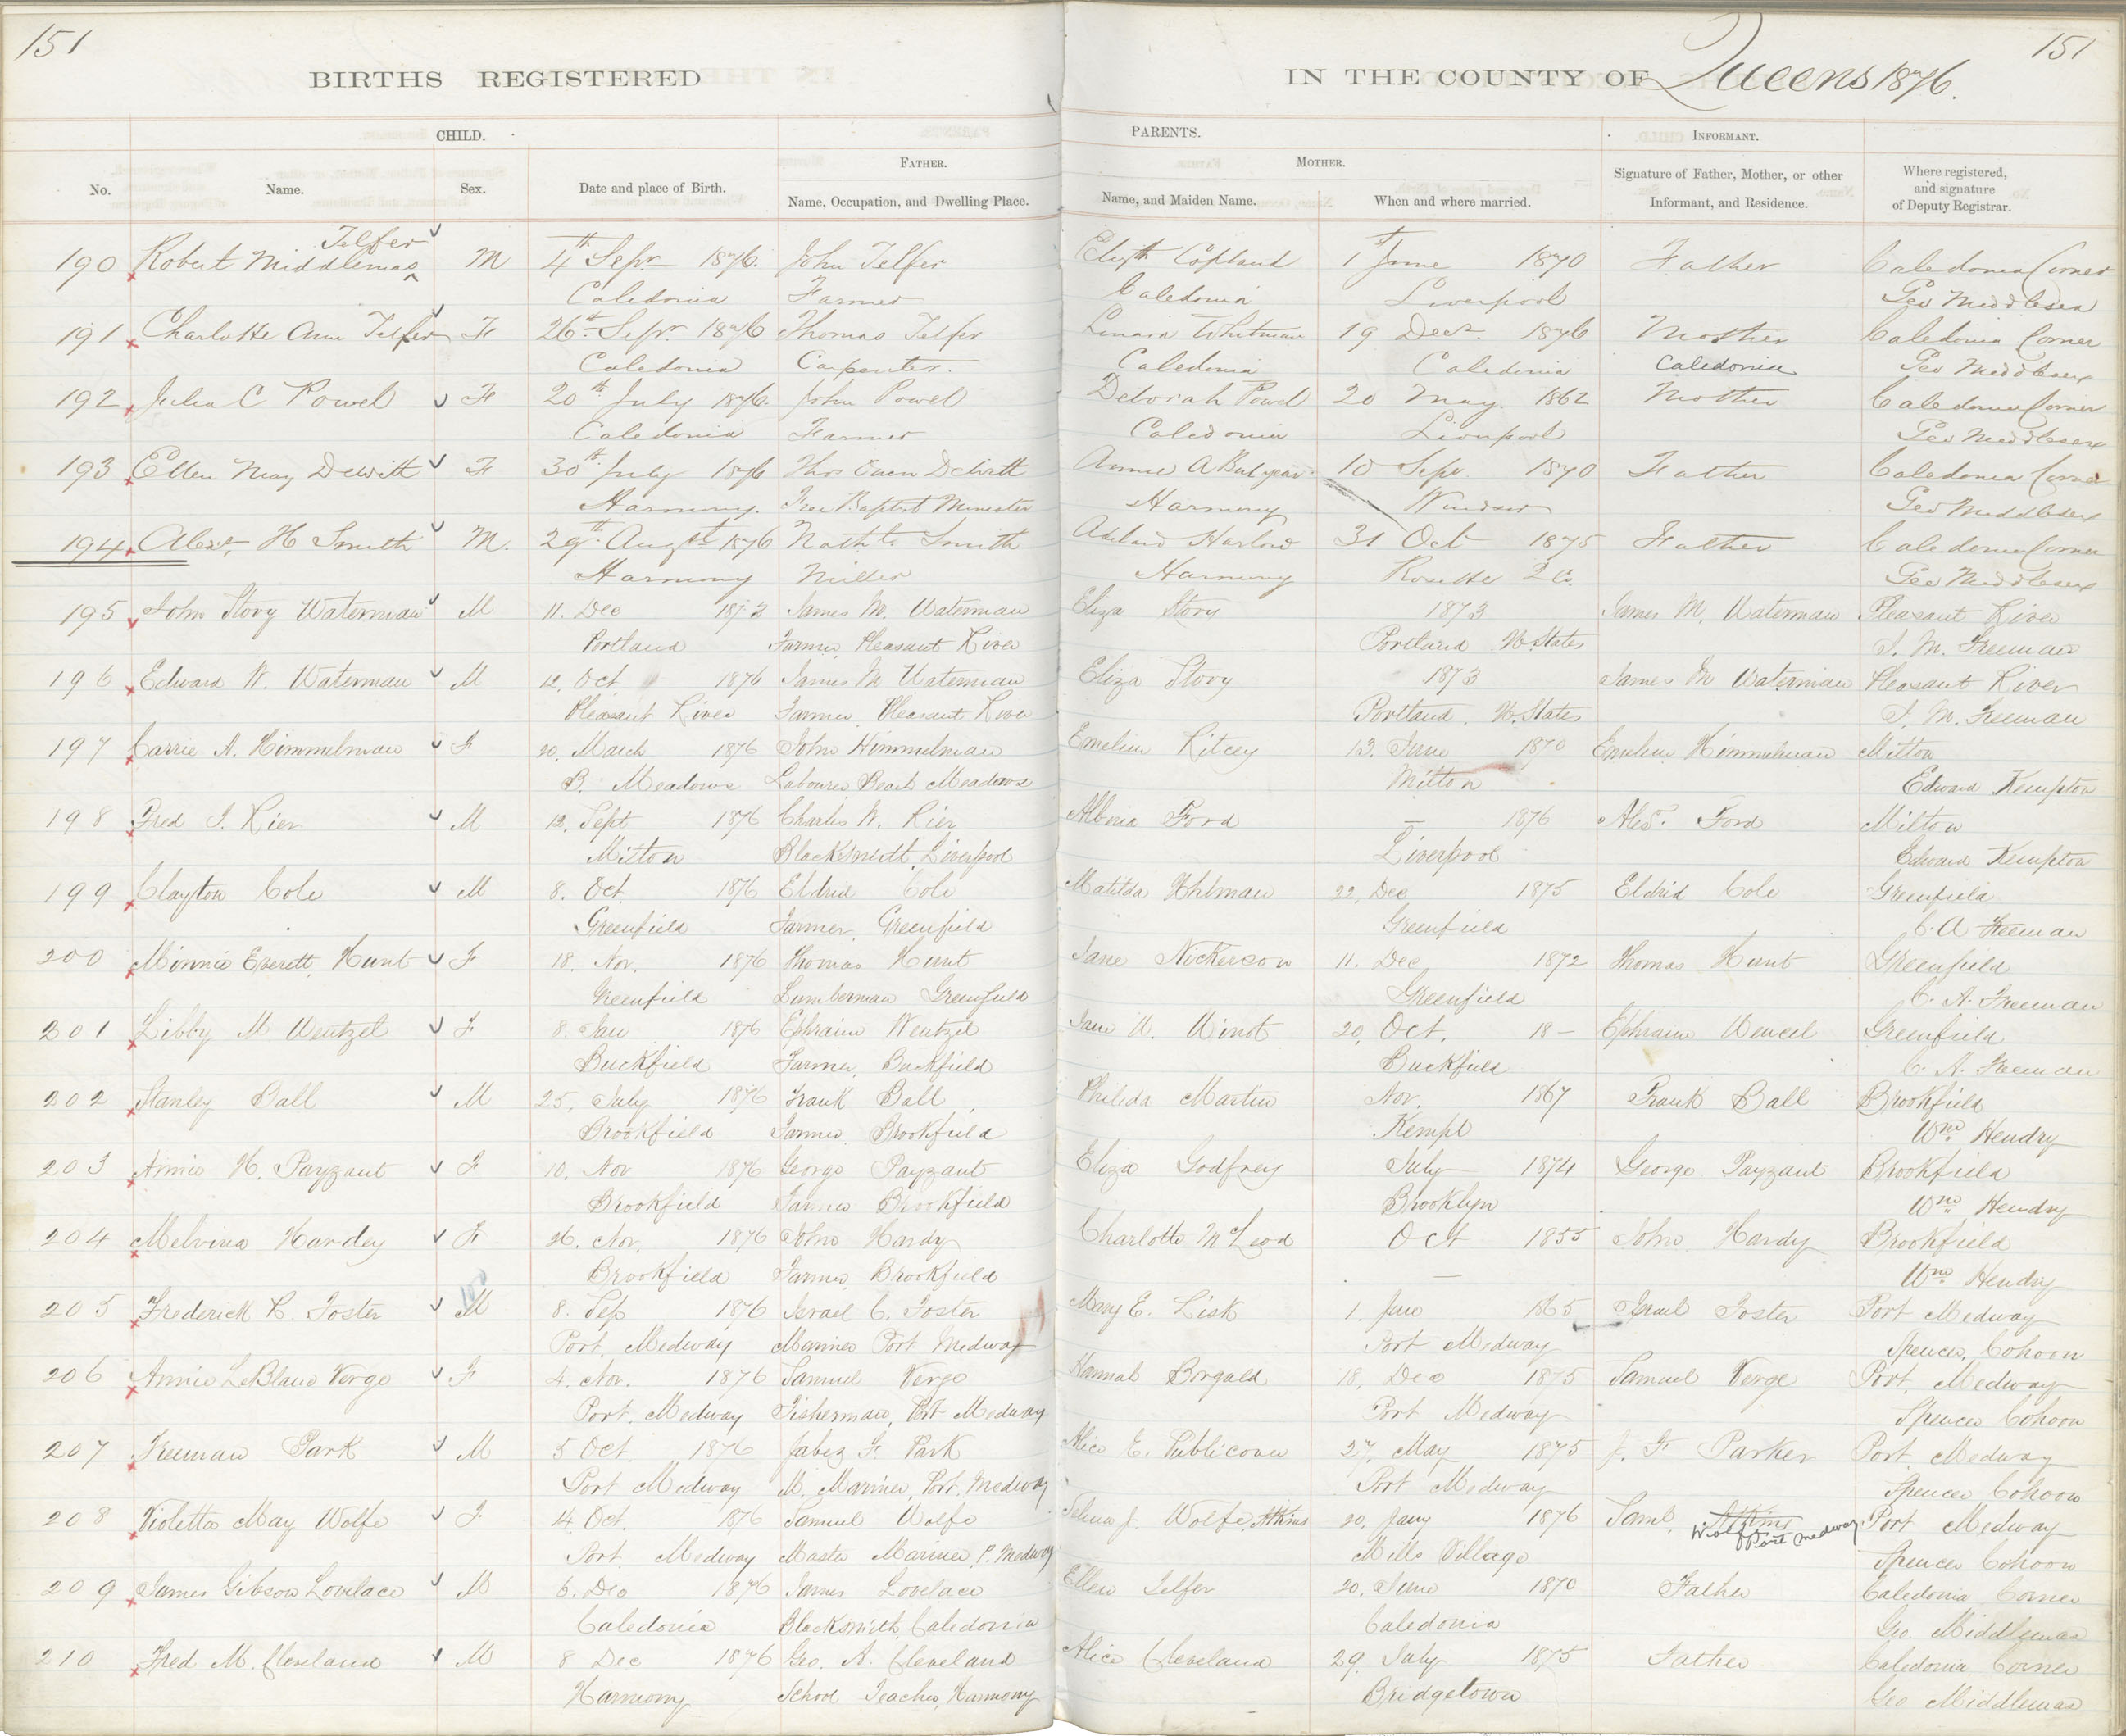 151
151
BIRTHS REGISTERED
IN THE COUNTY OF Queens 1876.
CHILD.
PARENTS.
INFORMANT.
FATHER.
MOTHER.
No.
Name.
Sex.
Date and place of Birth.
Name, Occupation, and Dwelling Place.
Name, and Maiden Name.
When and where married.
Signature of Father, Mother, or other Informant, and Residence.
Where registered, and signature of Deputy Registrar.
Telfer
190 Robert Middlemas M 4th Sepr 1876. John Telfer Elizth Copland 1st June 1870 Father Caledonia Corner
Caledonia Farmer Caledonia Liverpool Geo Middlemas
191 Charlotte Ann Telfer F 26th Sepr. 1876 Thomas Telfer Whitman 19 Decr. 1876 Mother Caledonia Corner
Caledonia Carpenter. Caledonia Caledonia Caledonia Geo Middlemas
192 Julia C Powel F 20th July 1876. John Powel Deborah Powel 20 May. 1862 Mother Caledonia Corner
Caledonia Farmer Caledonia Liverpool Geo Middlemas
193 Ellen May Dewitt F 30th July 1876 Thos Dewitt Annie A 10 Sepr 1870 Father Caledonia Corner
Harmony. Free Baptist Minister Harmony Windsor Geo Middlemas
194 Alexr. H Smith M. 29th Augst 1876 Smith Harlow 31 Oct 1875 Father Caledonia Corner
Harmony Miller Harmony Rosette Q Co. Geo Middlemas
195 John Story Waterman M 11. Dec 1873 James M. Waterman Eliza Story 1873 James M. Waterman Pleasant River
Portland Farmer Pleasant River Portland U. States S. M. Freeman
196 Edward W. Waterman M 12. Oct 1876 James M Waterman Eliza Story 1873 James M Waterman Pleasant River
Pleasant River Farmer, Pleasant River Portland, U. States S. M. Freeman
197 Carrie A. Himmelman F 20. March 1876 John Himmelman Emeline Ritcey 13. June 1870 Emeline Himmelman Milton
B. Meadows Labourer Beach Meadows Milton Edward Kempton
198 Fred I. Kier M 12. Sept 1876 Charles W. Kier Albina Ford — 1876 Alex. Ford Milton
Milton Blacksmith, Liverpool Liverpool Edward Kempton
199 Clayton Cole M 8. Oct. 1876 Eldrid Cole Matilda Whitman 22, Dec 1875 Eldrid Cole Greenfield
Greenfield Farmer, Greenfield Greenfield C. A Freeman
200 Minnie Everett Hunt F 18. Nov. 1876 Thomas Hunt Jane Nickerson 11. Dec 1872 Thomas Hunt Greenfield
Greenfield Lumberman Greenfield Greenfield C. A. Freeman
201 Libby M Wentzel F 8. Jan 1876 Ephraim Wentzel Jane W. Minot 20, Oct. 18— Ephraim Wencel Greenfield
Buckfield Farmer, Buckfield Buckfield C. A. Freeman
202 Stanley Ball M 25. July 1876 Frank Ball Philida Martin Nov. 1867 Frank Ball Brookfield
Brookfield Farmer, Brookfield Kempt Wm Hendry
203 Annie H. Payzant F 10. Nov 1876 George Payzant Eliza Godfrey July 1874 George Payzant Brookfield
Brookfield Farmer Brookfield Brooklyn Wm Hendry
204 Melvina Hardey F 26. Nov. 1876 John Hardy Charlotte McLeod Oct 1855 John Hardy Brookfield
Brookfield Farmer, Brookfield — Wm Hendry
205 Frederick C. Foster M 8. Sep 1876 Israel C. Foster Mary E. Lisk 1. June 1865 Israel Foster Port Medway
Port Medway Mariner Port Medway Port Medway Spencer Cohoon
206 Annie LeBlanc Verge F 4. Nov. 1876 Samuel Verge Hannah Borgald 18. Dec 1875 Samuel Verge Port Medway
Port Medway Fisherman, Port Medway Port Medway Spencer Cohoon
207 Freeman Park M 5 Oct 1876 Jabez F. Park Alice E. Publicover 27. May 1875 J. F Parker Port Medway
Port Medway M. Mariner, Port Medway Port Medway Spencer Cohoon
208 Violetta May Wolfe F 4. Oct. 1876 Samuel Wolfe Selena J. Wolfe, Atkins 20. Jany 1876 Saml. Atkins Port Medway
Wolfe Port Medway
Port Medway Master Mariner, P. Medway Mills Village Spencer Cohoon
209 James Gibson Lovelace M 6. Dec 1876 James Lovelace Ellen Telfer 20. June 1870 Father Caledonia Corner
Caledonia Blacksmith, Caledonia Caledonia Geo. Middlemas
210 Fred M. Cleveland M 8 Dec 1876 Geo. A. Cleveland Alice Cleveland 29. July 1875 Father Caledonia Corner
Harmony School Teacher, Harmony Bridgetown Geo Middlemas